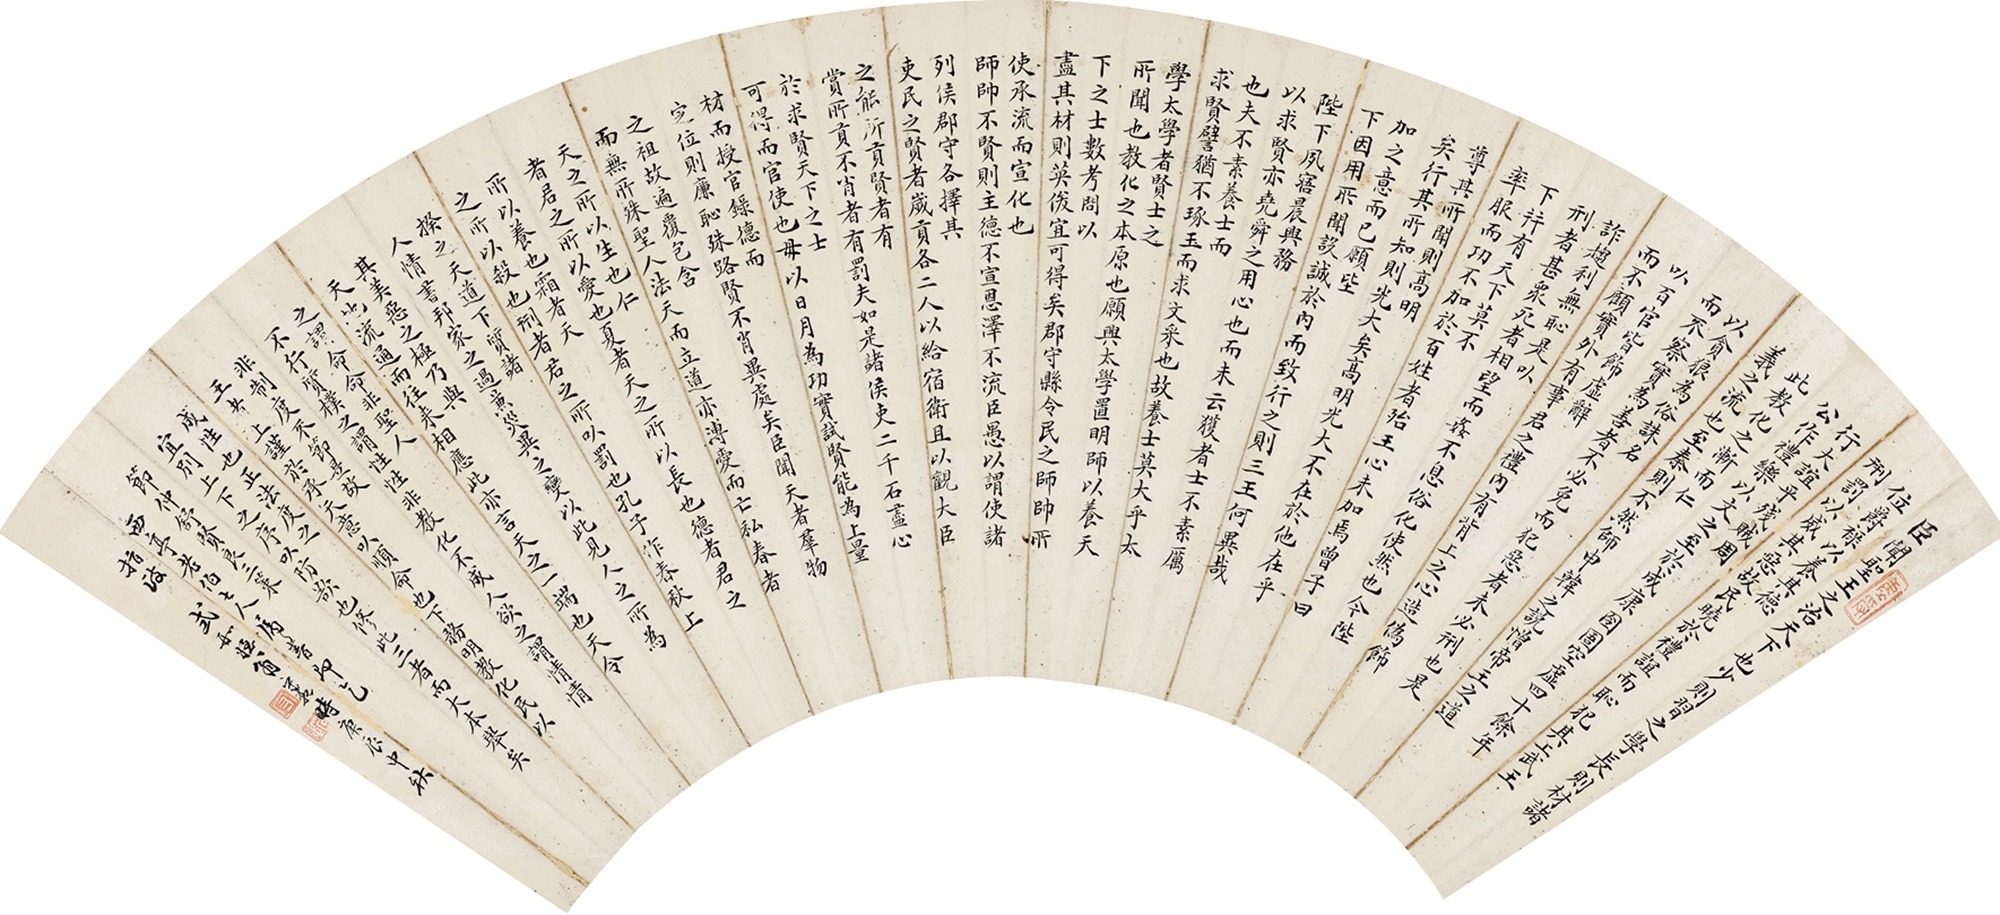 臣聞聖王之治天下也少則習之學長則材諸
位爵祿以養其德
刑罰以威其惡故民曉於禮誼而恥犯其上武王
行大誼平殘賊周
公作禮樂以文之至於成康囹圄空虛四十餘年
此教化之漸而仁
義之流也至秦則不然師申韓之說憎帝王之道
以貪狼為俗誅名
而不察實為善者不必免而犯惡者未必刑也是
以百官皆飾虛辭
而不顧實外有事君之禮內有背上之心造偽飾
詐趨利無恥是以
刑者甚衆死者相望而姦不息俗化使然也今陛
下并有天下莫不
率服而功不加於百姓者殆王心未加焉曾子曰
尊其所聞則高明
矣行其所知則光大矣高明光大不在於他在乎
加之意而已願陛
下因用所聞設誠於內而致行之則三王何異哉
陛下夙寤晨興務
以求賢亦堯舜之用心也而未云獲者士不素厲
也夫不素養士而
求賢譬猶不琢玉而求文采也故養士莫大乎太
學太學者賢士之
所聞也教化之本原也願興太學置明師以養天
下之士數考問以
盡其材則英俊宜可得矣郡守縣令民之師帥所
使承流而宣化也
師帥不賢則主德不宣恩澤不流臣愚以謂使諸
列侯郡守各擇其
吏民之賢者歲貢各二人以給宿衛且以觀大臣
之能所貢賢者有
賞所貢不肖者有罰夫如是諸侯吏二千石盡心
於求賢天下之士
可得而官使也毋以日月為功實試賢能為上量
材而授官錄德而
定位則廉恥殊路賢不肖異處矣臣聞天者羣物
之祖故遍覆包含
而無所殊聖人法天而立道亦溥愛而亡私春者
天之所以生也仁
者君之所以愛也夏者天之所以長也德者君之
所以養也霜者天
之所以殺也刑者君之所以罰也孔子作春秋上
揆之天道下質諸
人情書邦家之過兼災異之變以此見人之所為
其美惡之極乃與
天地流通而往來相應此亦言天之一端也天令
之謂命命非聖人
不行質樸之謂性性非教化不成人欲之謂情情
非制度不節是故
王者上謹於承天意以順命也下務明教化民以
成性也正法度之
宜別上下之序以防欲也修此三者而大本舉矣
節仲舒賢良三策
西亭老伯大人屬書即乞 時庚辰中秋
指政 式如姪翁